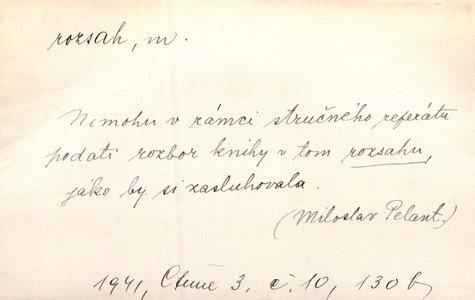 rozsah, m.
Nemohu v rámci stručného referátu
podati rozbor knihy v tom rozsahu,
jako by si zasluhovala.
(Miloslav Pelant.)
1941, Čteme 3. č. 10, 130 b